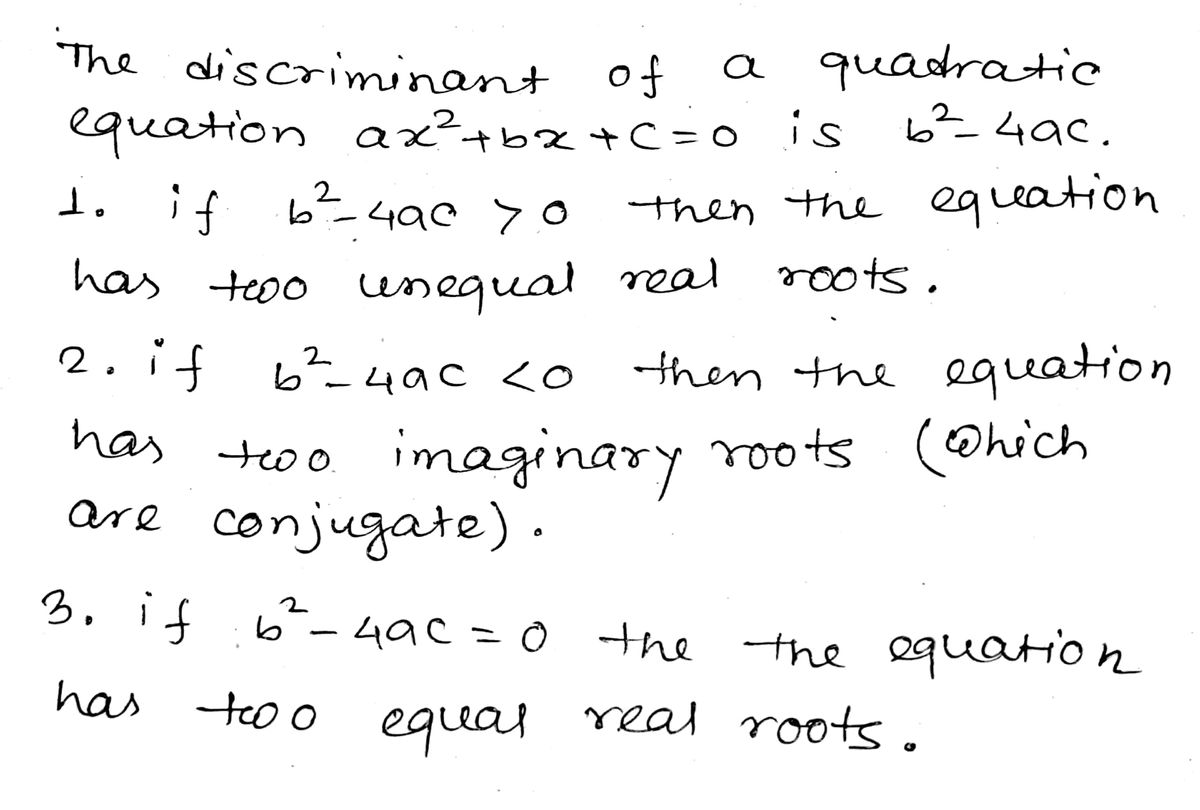 The discriminant of a quadratic
equation ax²+bx+c=0 is b²-4ac.
1. if b²-4ac >0 then the equation
has two unequal real roots.
2. if b²-4ac <0 then the equation
has two imaginary roots (which
are conjugate).
3. if b²-4ac=0 the the equation
has two equal real roots.